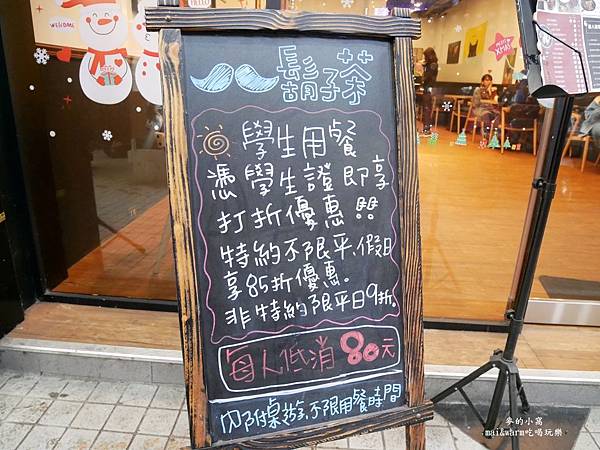 WELCOME
鬍子茶
學生用餐
憑學生證即享
打折優惠!!
特約不限平、假日
享85折優惠。
非特約限平日9折。
每人低消80元
內附桌遊,不限用餐時間
麥的小窩
mai&warm吃喝玩樂